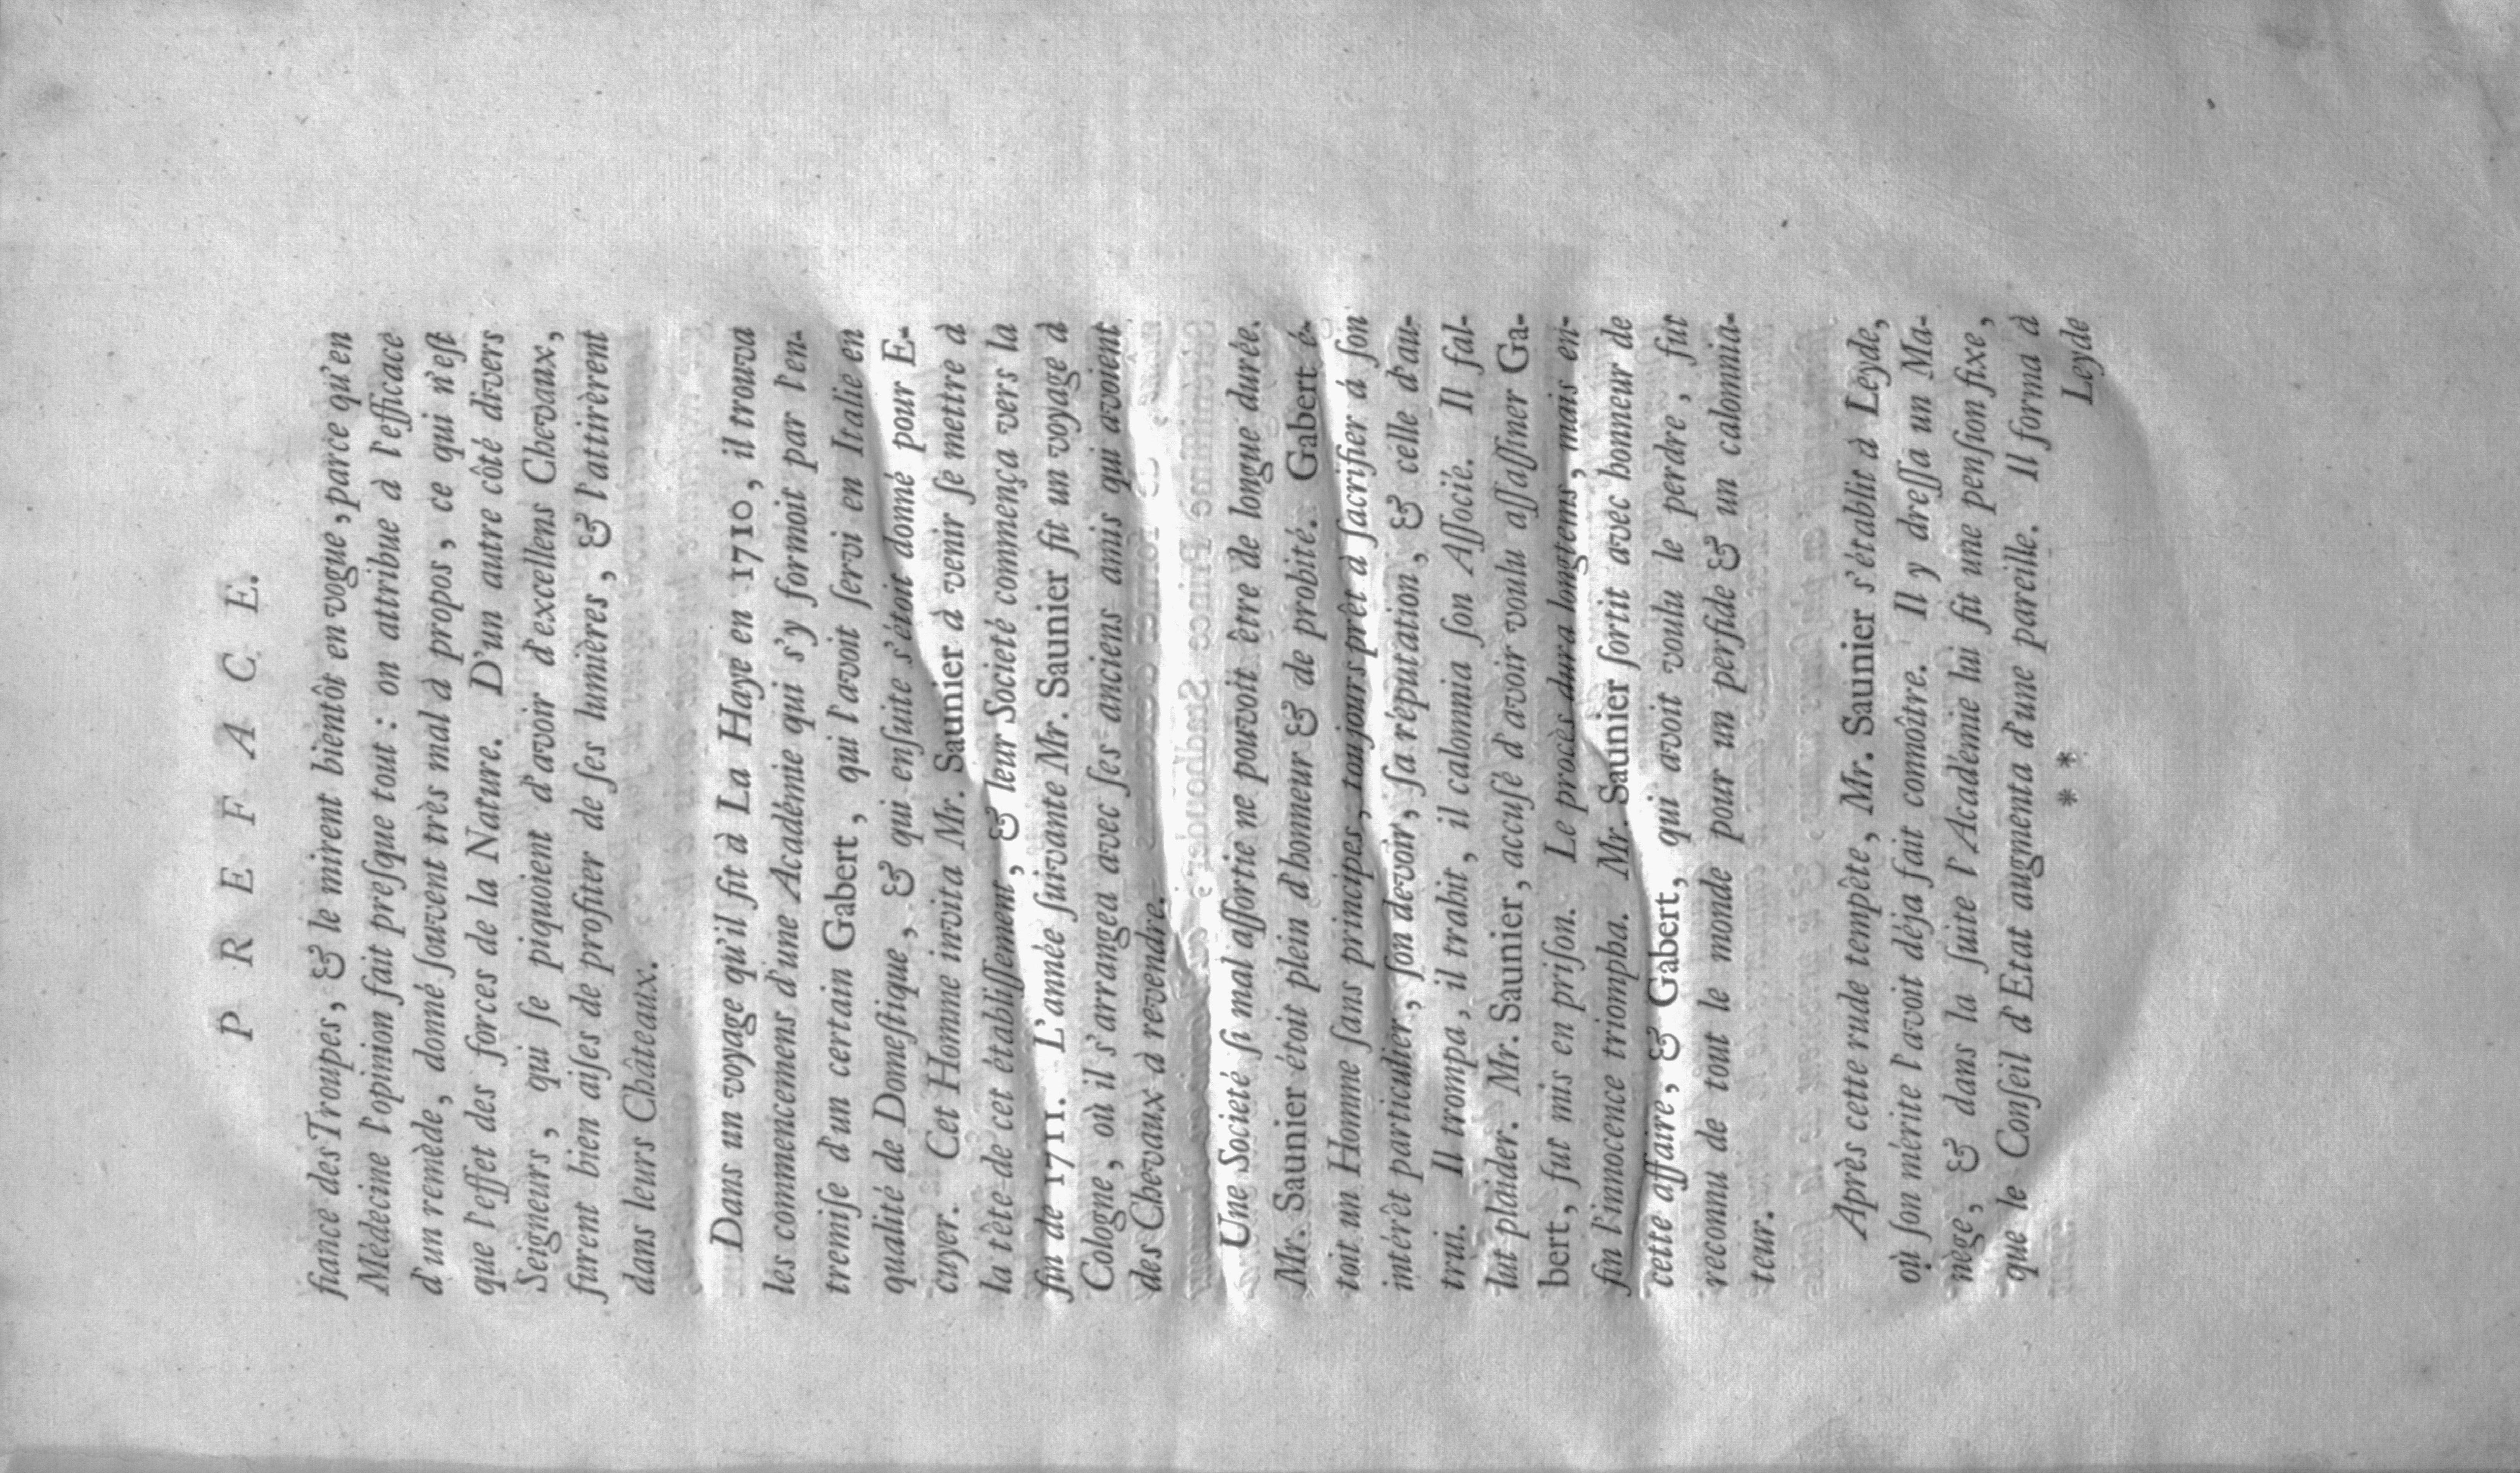 P R E F A C E.
fiance des Troupes, & le mirent bientôt en vogue, parce qu'en
Médecine l'opinion fait preſque tout : on attribue à l'efficace
d'un remède, donné ſouvent très mal à propos, ce qui n'eſt
que l'effet des forces de la Nature. D'un autre côté divers
Seigneurs, qui ſe piquoient d'avoir d'excellens Chevaux,
furent bien aiſes de profiter de ſes lumières, & l'attirèrent
dans leurs Châteaux.
Dans un voyage qu'il fit à La Haye en 1710, il trouva
les commencemens d'une Académie qui s'y formoit par l'en-
tremiſe d'un certain Gabert, qui l'avoit ſervi en Italie en
qualité de Domeſtique, & qui enſuite s'étoit donné pour E-
cuyer. Cet Homme invita Mr. Saunier à venir ſe mettre à
la tête de cet établiſſement, & leur Societé commença vers la
fin de 1711. L'année ſuivante Mr. Saunier fit un voyage à
Cologne, où il s'arrangea avec ſes anciens amis qui avoient
des Chevaux à revendre.
Une Societé ſi mal aſſortie ne pouvoit être de longue durée.
Mr. Saunier étoit plein d'honneur & de probité. Gabert é-
toit un Homme ſans principes, toujours prêt à ſacrifier á ſon
intérêt particulier, ſon devoir, ſa réputation, & celle d'au-
trui. Il trompa, il trahit, il calomnia ſon Aſſocié. Il fal-
lut plaider. Mr. Saunier, accuſé d'avoir voulu aſſaſſiner Ga-
bert, fut mis en priſon. Le procès dura longtems, mais en-
fin l'innocence triompha. Mr. Saunier ſortit avec honneur de
cette affaire, & Gabert, qui avoit voulu le perdre, fut
reconnu de tout le monde pour un perfide & un calomnia-
teur.
Après cette rude tempête, Mr. Saunier s'établit à Leyde,
où ſon mérite l'avoit déja fait connoître. Il y dreſſa un Ma-
nège, & dans la ſuite l'Académie lui fit une penſion fixe,
que le Conſeil d'Etat augmenta d'une pareille. Il forma à
* * Leyde